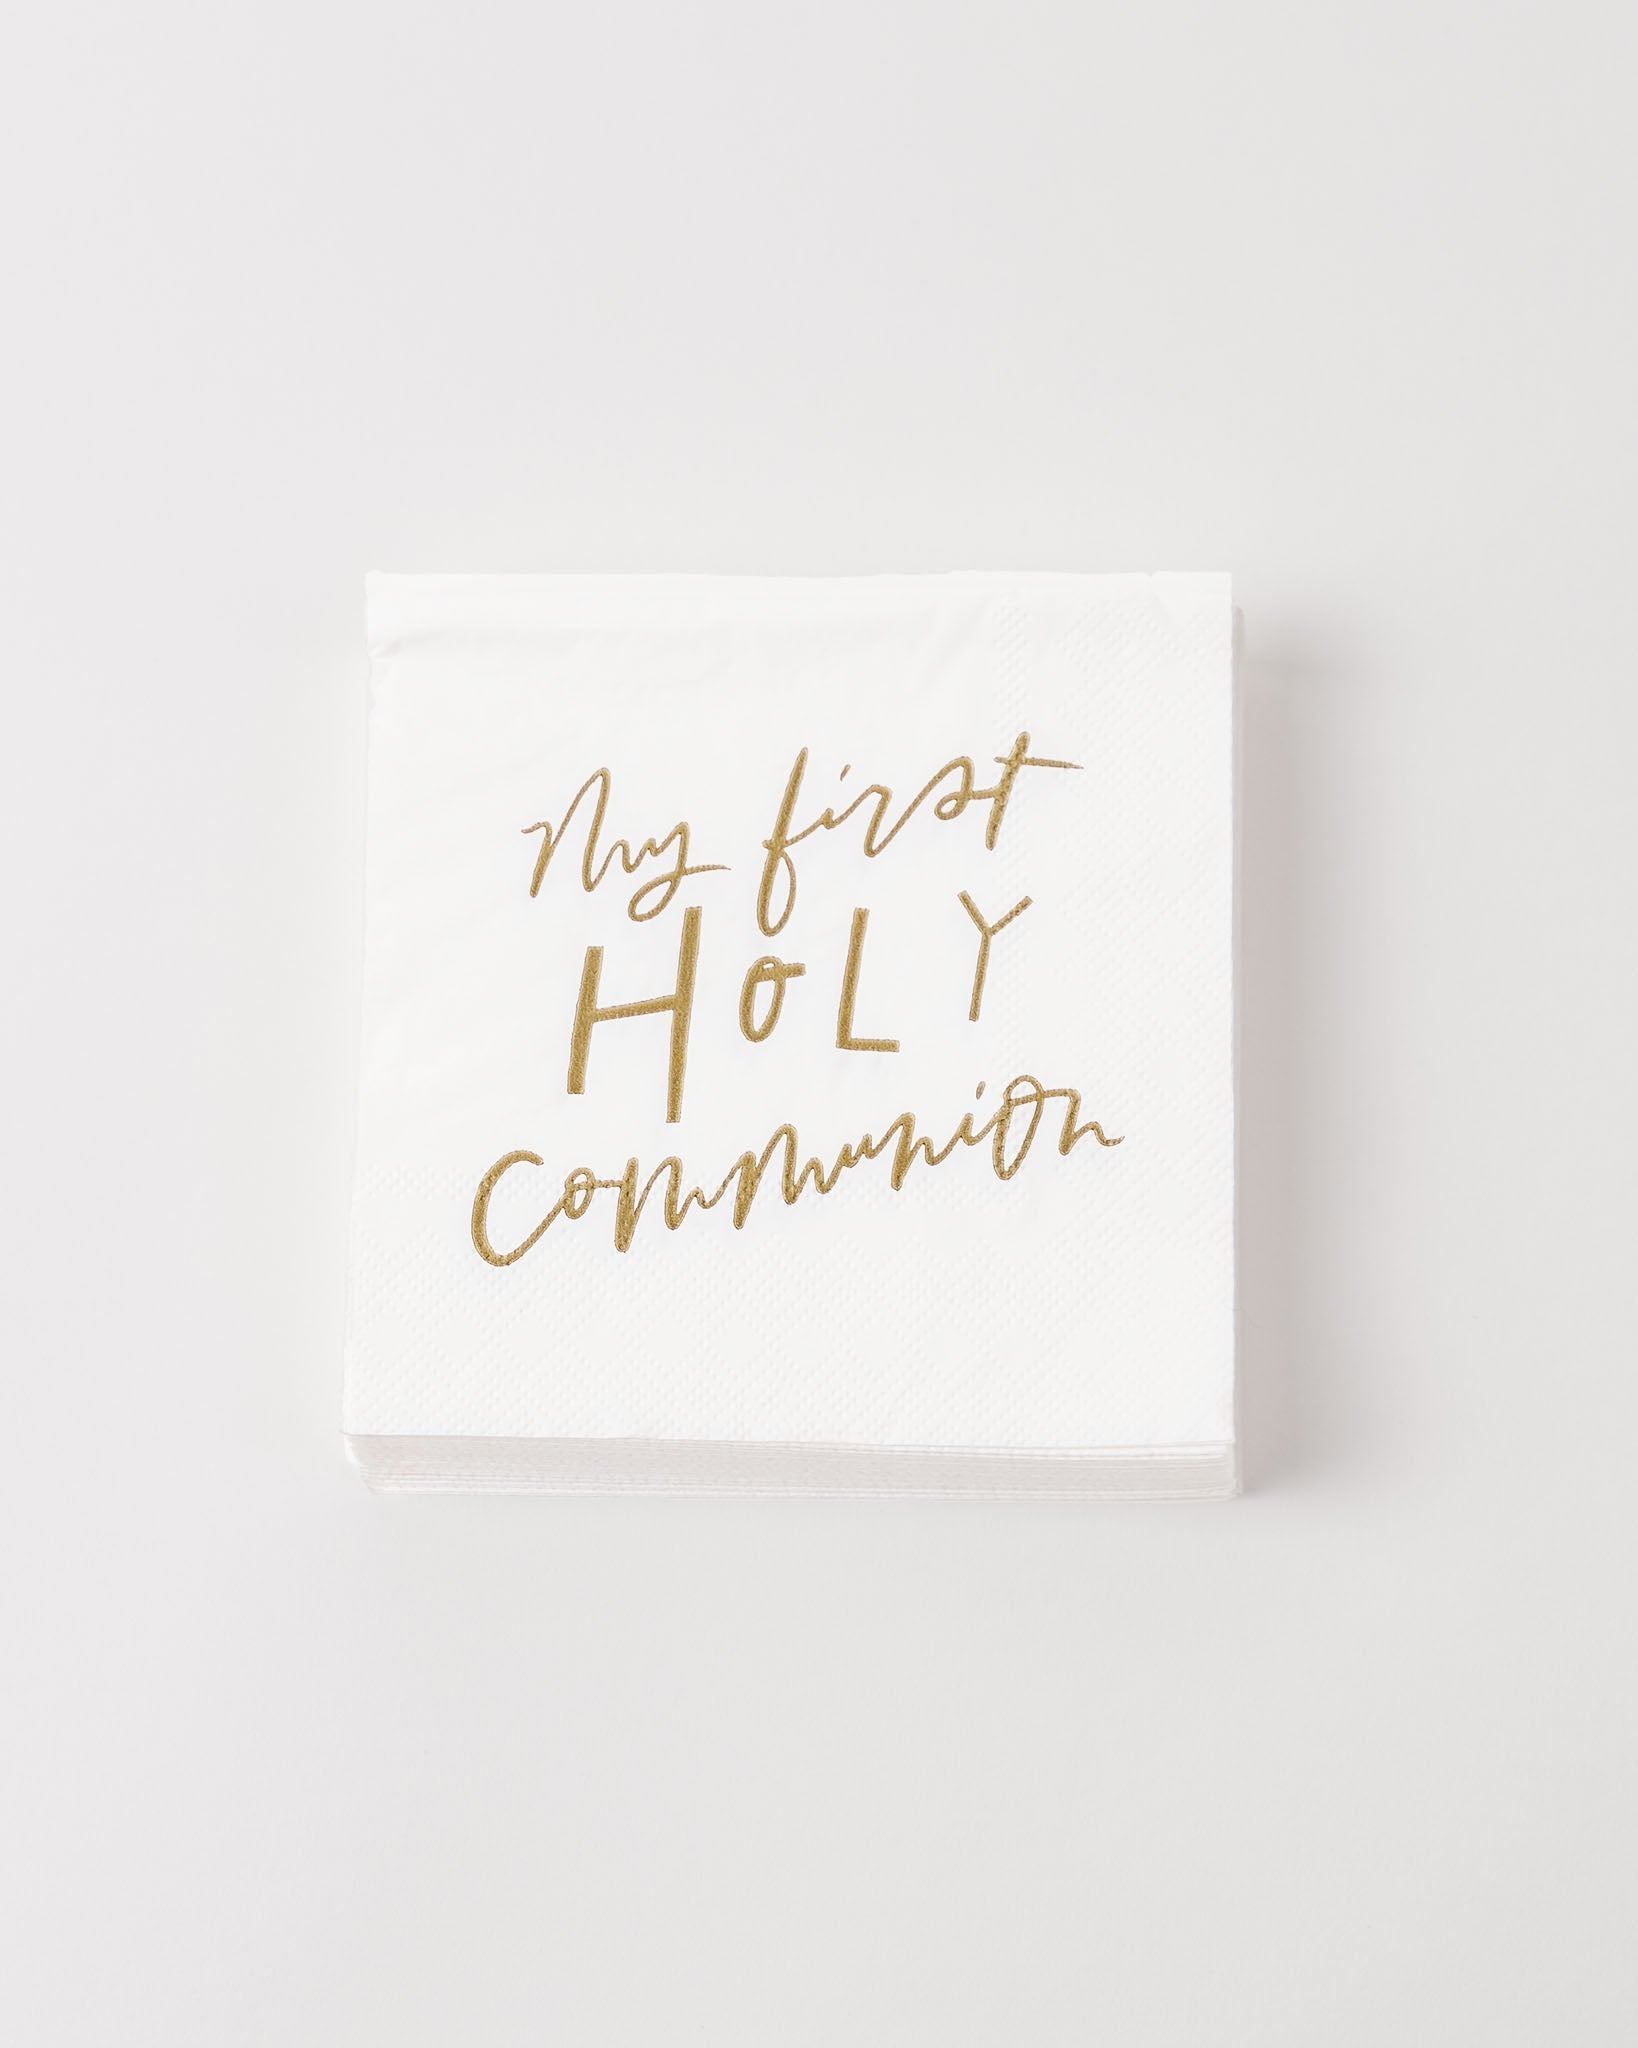 My first
HOLY
Communion